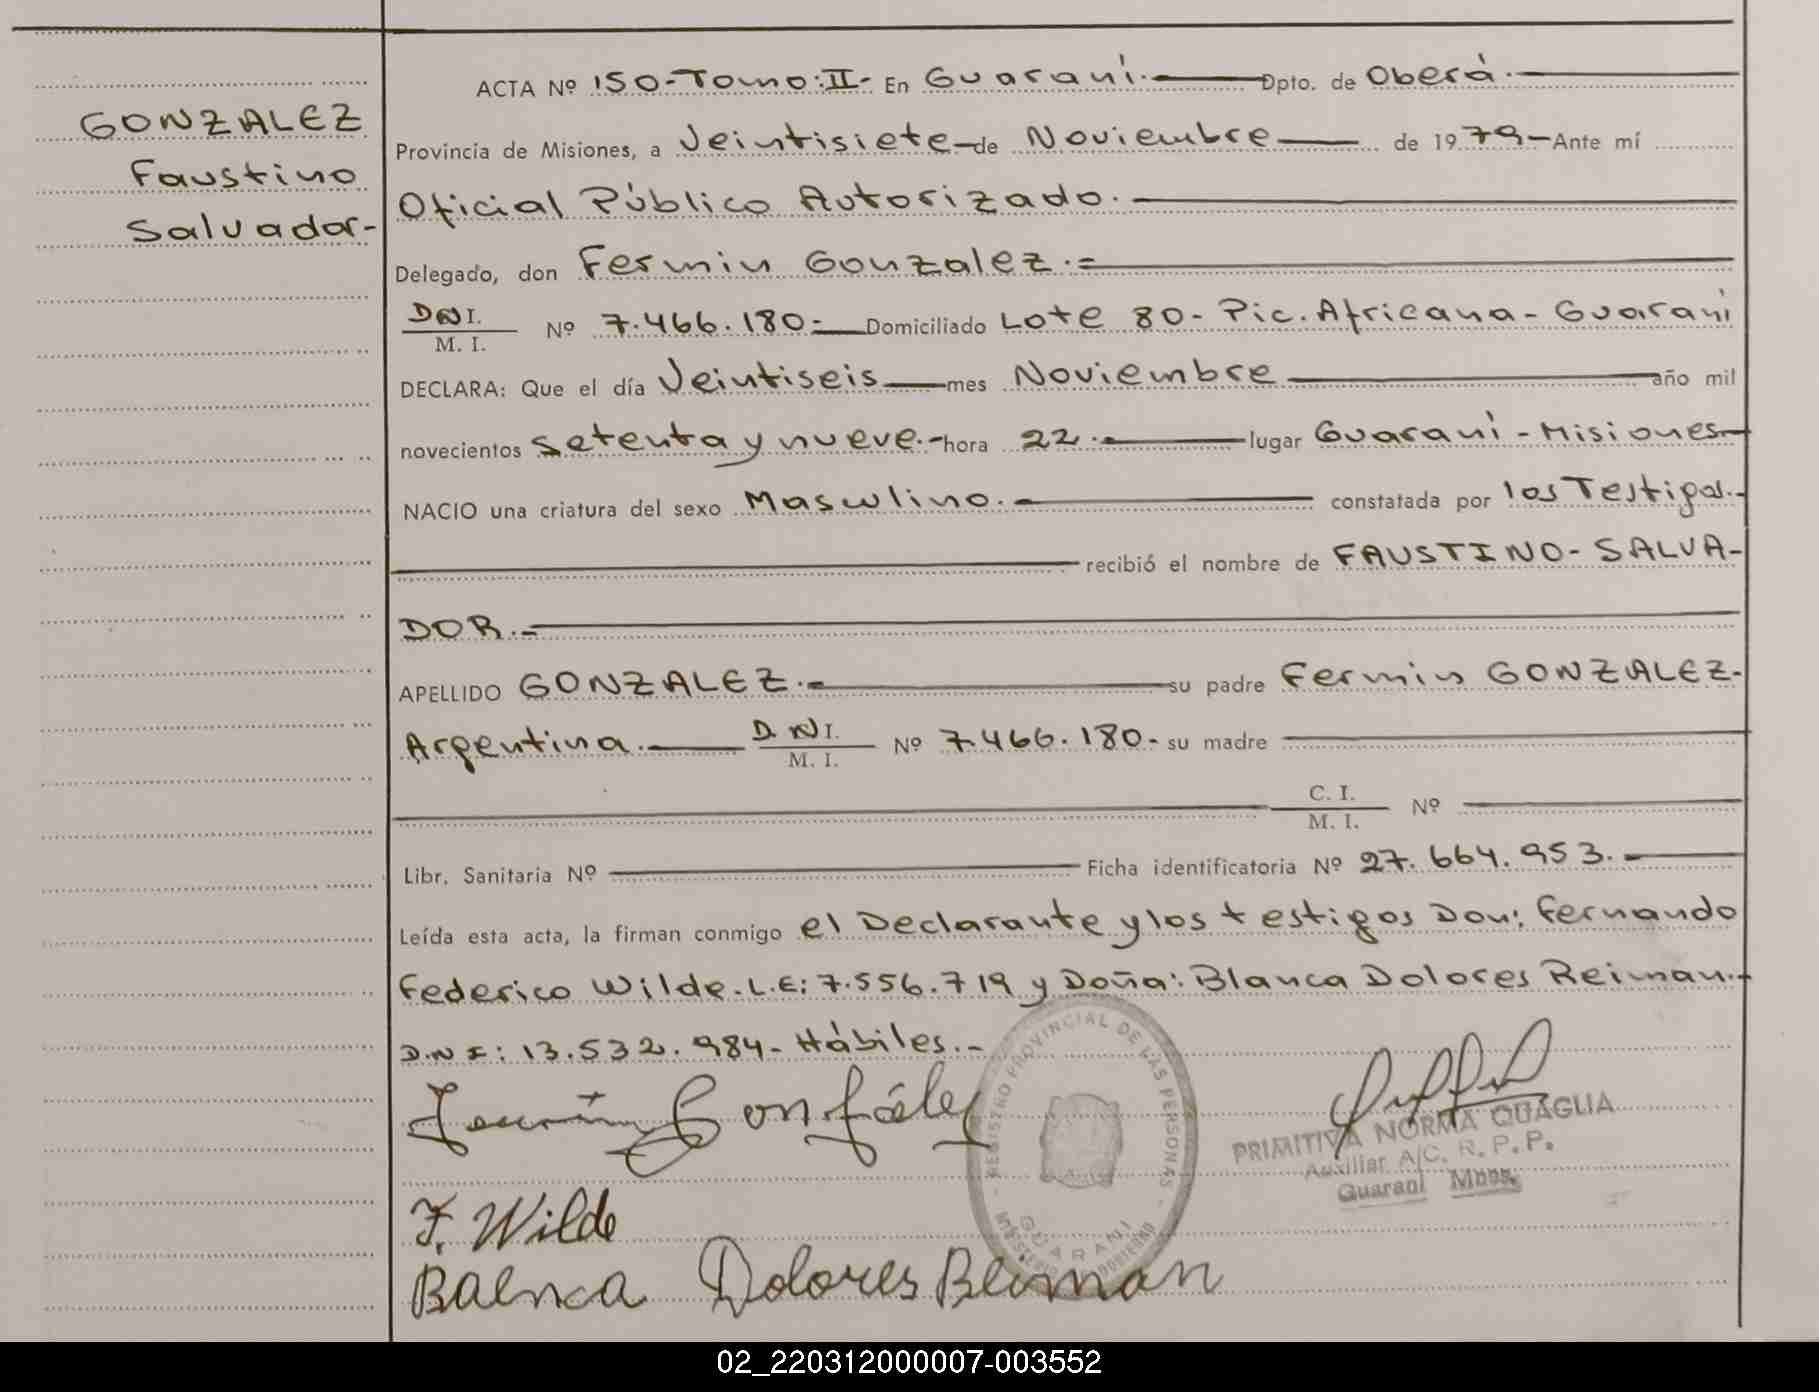 GONZALEZ
Faustino
Salvador-
ACTA Nº 150-Tomo:II- En Guaraní. Dpto. de Oberá.
Provincia de Misiones, a Veintisiete de Noviembre de 1979- Ante mí
Oficial Público Autorizado.
Delegado, don Fermin Gonzalez.=
DNI.
M. I. Nº 7.466.180- Domiciliado Lote 80- Pic. Africana- Guaraní
DECLARA: Que el día Veintiseis mes Noviembre año mil
novecientos Setenta y nueve.- hora 22.- lugar Guaraní-Misiones-
NACIO una criatura del sexo Masculino.- constatada por los Testigos.-
recibió el nombre de FAUSTINO- SALVA-
DOR.-
APELLIDO GONZALEZ.- su padre Fermin GONZALEZ-
Argentina. D.NI.
M. I. Nº 7.466.180- su madre
C. I.
M. I. Nº
Libr. Sanitaria Nº Ficha identificatoria Nº 27.664.953.-
Leída esta acta, la firman conmigo el Declarante y los testigos Don: Fernando
Federico Wilde.L.E: 7.556.719 y Doña: Blanca Dolores Reiman.-
D.N I: 13.532.984- Hábiles.-
Fermín González
REGISTRO PROVINCIAL DE LAS PERSONAS
GUARANI
MINISTERIO DE GOBIERNO
PRIMITIVA NORMA QUAGLIA
Auxiliar A/C. R. P. P.
Guaraní Mnes.
F. Wilde
Balnca Dolores Reiman
02_220312000007-003552